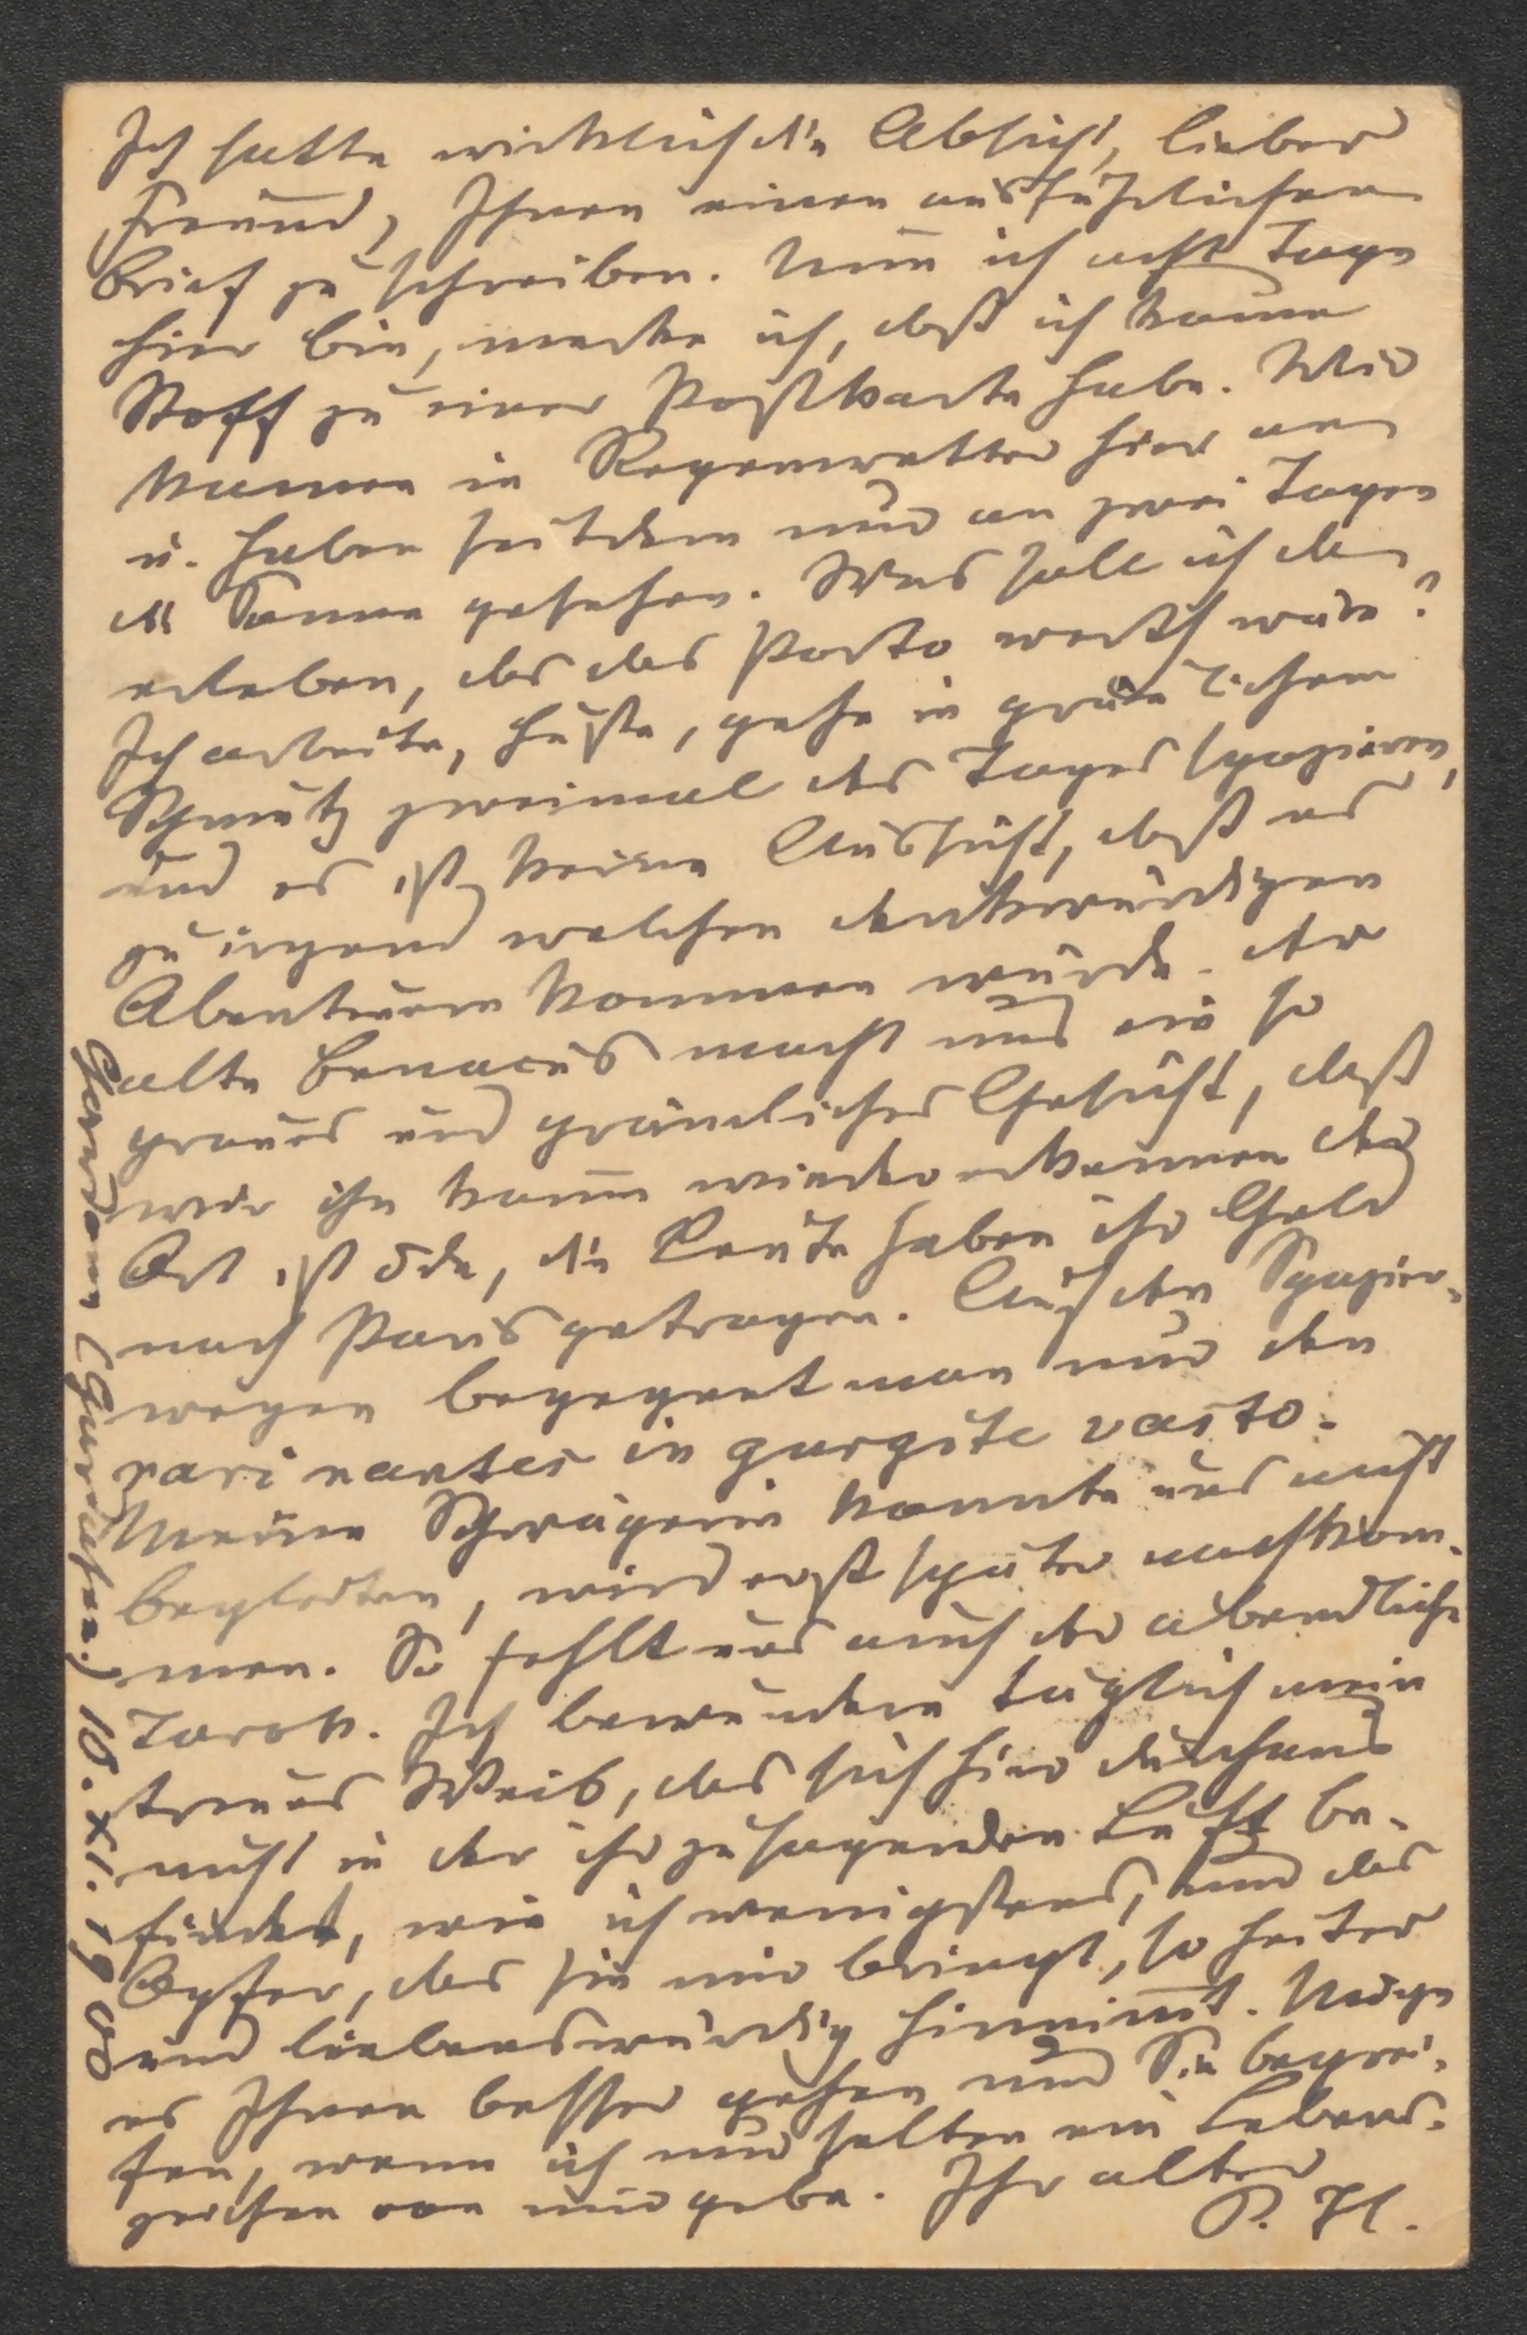 Ich hatte wirklich die Absicht, lieber
Freund, Ihnen einen ausführlichen
Brief zu schreiben. Nun ich acht Tage
hier bin, merke ich, daß ich kaum
Stoff zu einer Postkarte habe. Wir
kamen in Regenwetter hier an
u. haben seitdem nur an zwei Tagen
die Sonne gesehen. Was soll ich da
erleben, das das Porto werth wäre?
Ich arbeite, huste, gehe in
Schmutz zweimal des Tages spazieren,
und es ist keine Aussicht, daß es
zu irgend welchen denkwürdigen
Abenteuern kommen würde. Der
alte Benacus macht uns ein so
graues und grämliches Gesicht, daß
wir ihn kaum wiedererkennen der
Ort ist öde, die Leute haben ihr Geld
nach Paris getragen. Auf den Spazier-
wegen begegnet man nur den
rari nantes in gurgite vasto.
Meine Schwägerin konnte uns nicht
begleiten, wird erst später nachkom-
men. So fehlt uns auch der abendliche
Tarok. Ich bewundere täglich mein
treues Weib, das sich hier durchaus
nicht in der ihr zusagenden Luft be-
findet, wie ich wenigstens, und das
Opfer, das sie mir bringt, so heiter
und liebenswürdig hinnimt. Möge
es Ihnen besser gehen und Sie begrei-
fen, wenn ich nur selten ein Lebens-
zeichen von mir gebe. Ihr alter
P. H.
Gardone (Gardasee.) 10. XI. 1900